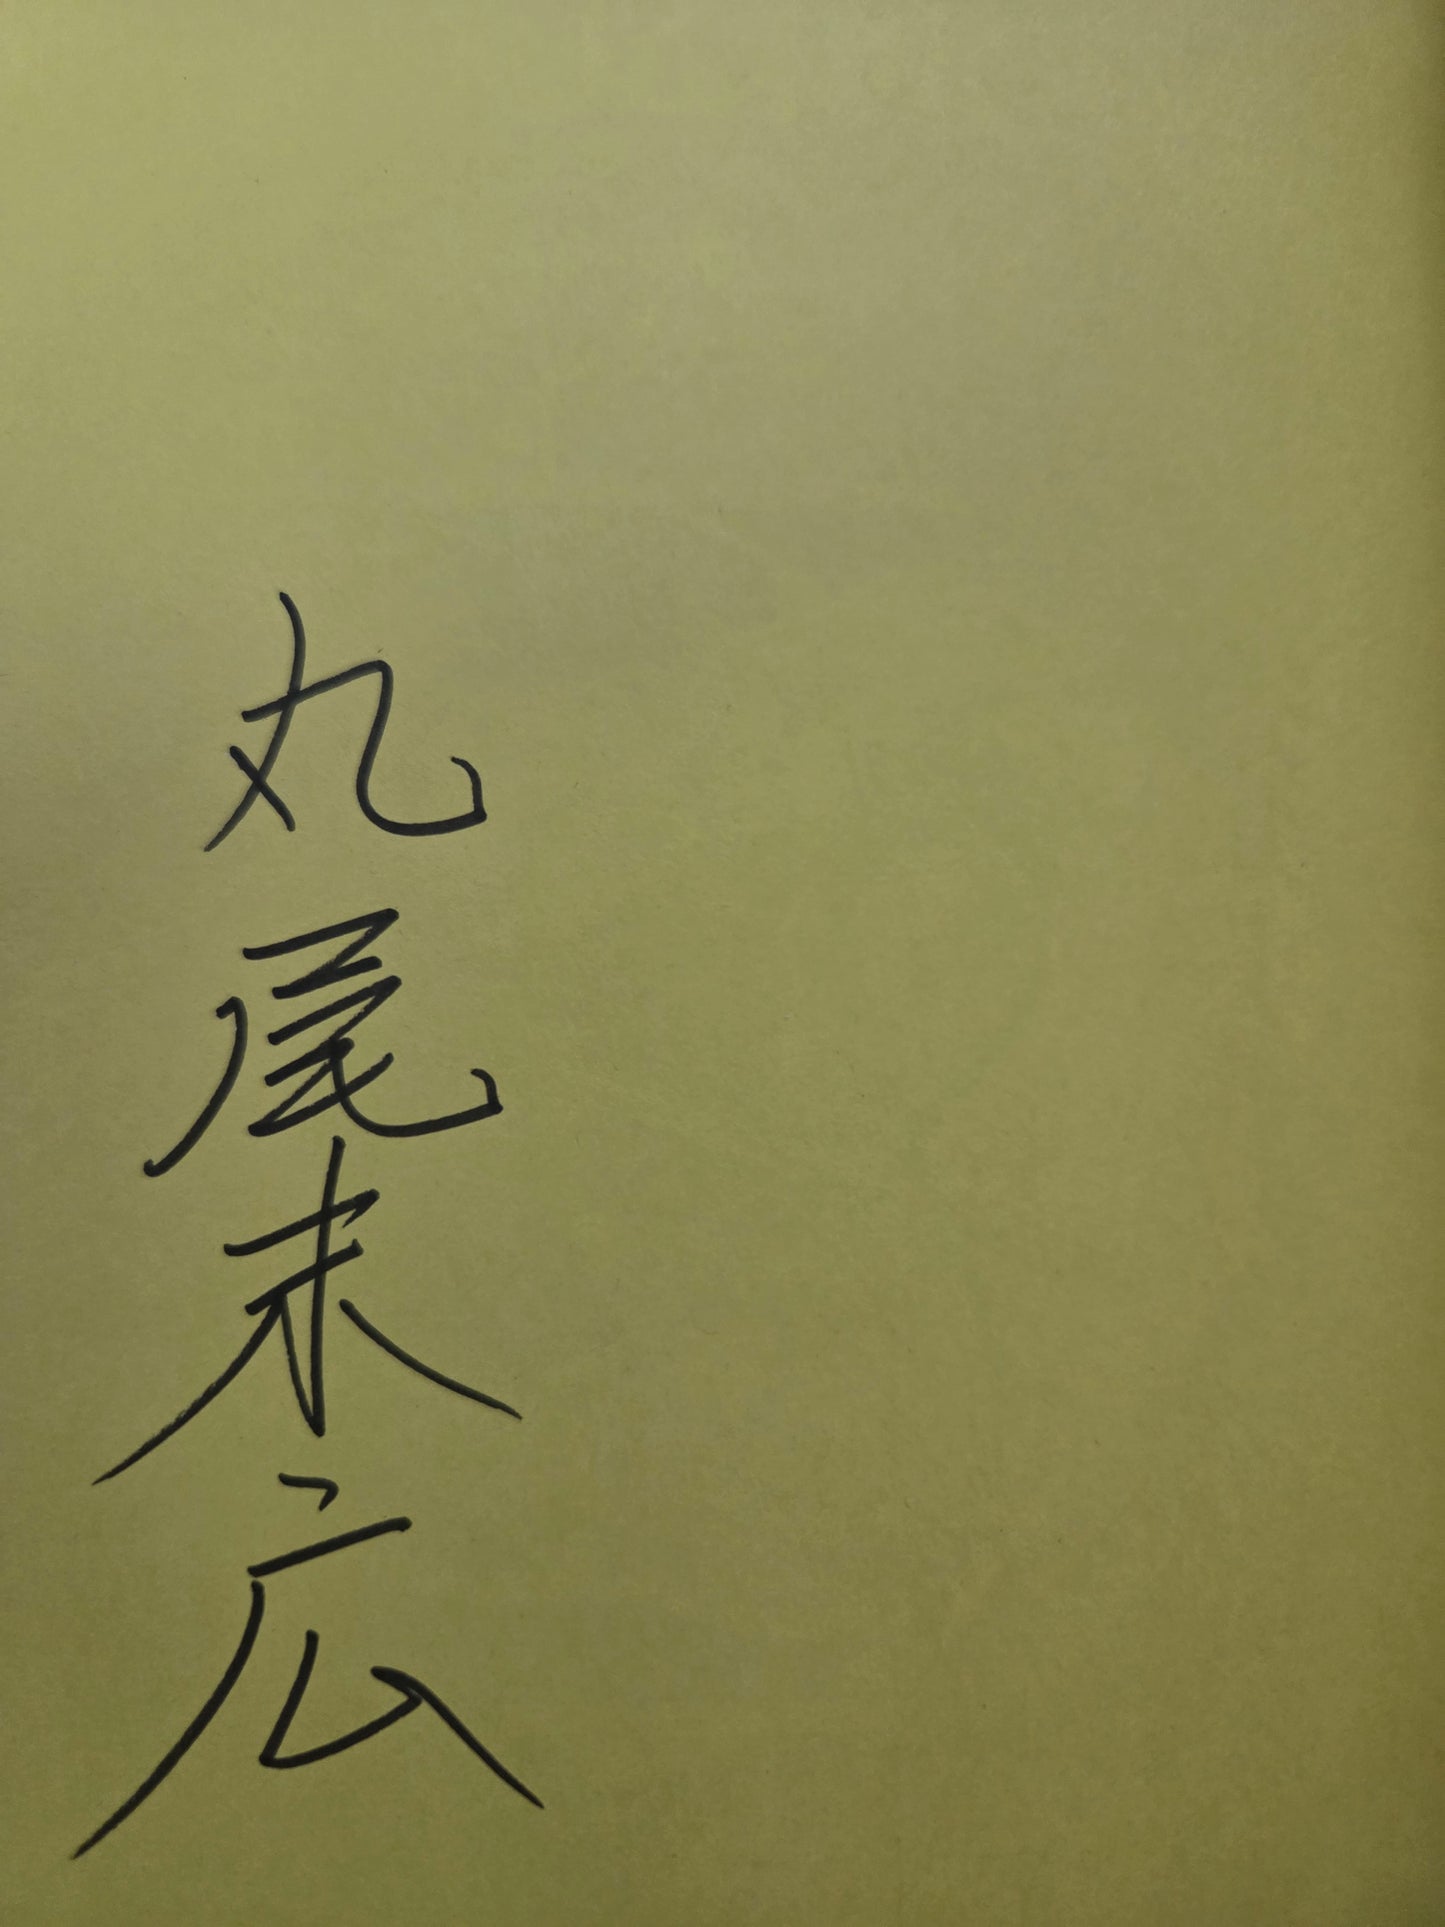 丸尾末広